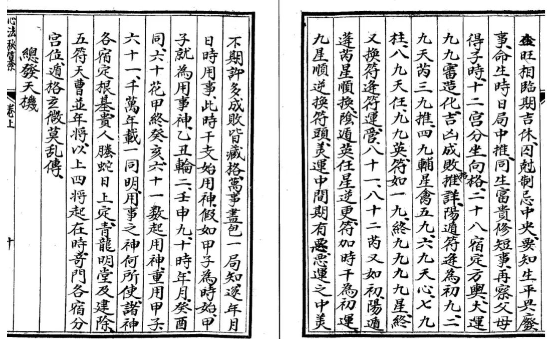 盘旺相臨期吉休囚剋制忌中央要知生平興廢
事命生時日局中推同生富貴修短事再察父母
得子時十二宮分坐向格二十八宿定方輿大運
九九審造化吉凶成敗推詳陽遁符逢為初九二
九天芮三九推四九輔星禽五九六九天心七九
柱八九天任九九英符如一九終九九九星終
又換符逢符運營八十一八十二芮又如初陽遁
蓬芮星順逆換陰遁英任星逆更符加時干為初運
九星順逆符換頭美運中間期有惡惡運之中美
不期許多成敗皆藏格萬事盡包一局知逐年月
日時用事此時干支始用神假如甲子為時始甲
子就為用事神乙丑輪二壬申九十時年月癸酉
同六十花甲終癸亥六十一數起用神重用甲子
六十一千萬年載一同明用事之神何所使諸神
各宿定根基貴人螣蛇日上定青龍明堂及建除
五符天曹並年將以上四將起在時奇門各宿分
宮位遁格玄微莫乱傳
總發天機
心法秘竅
卷上
十